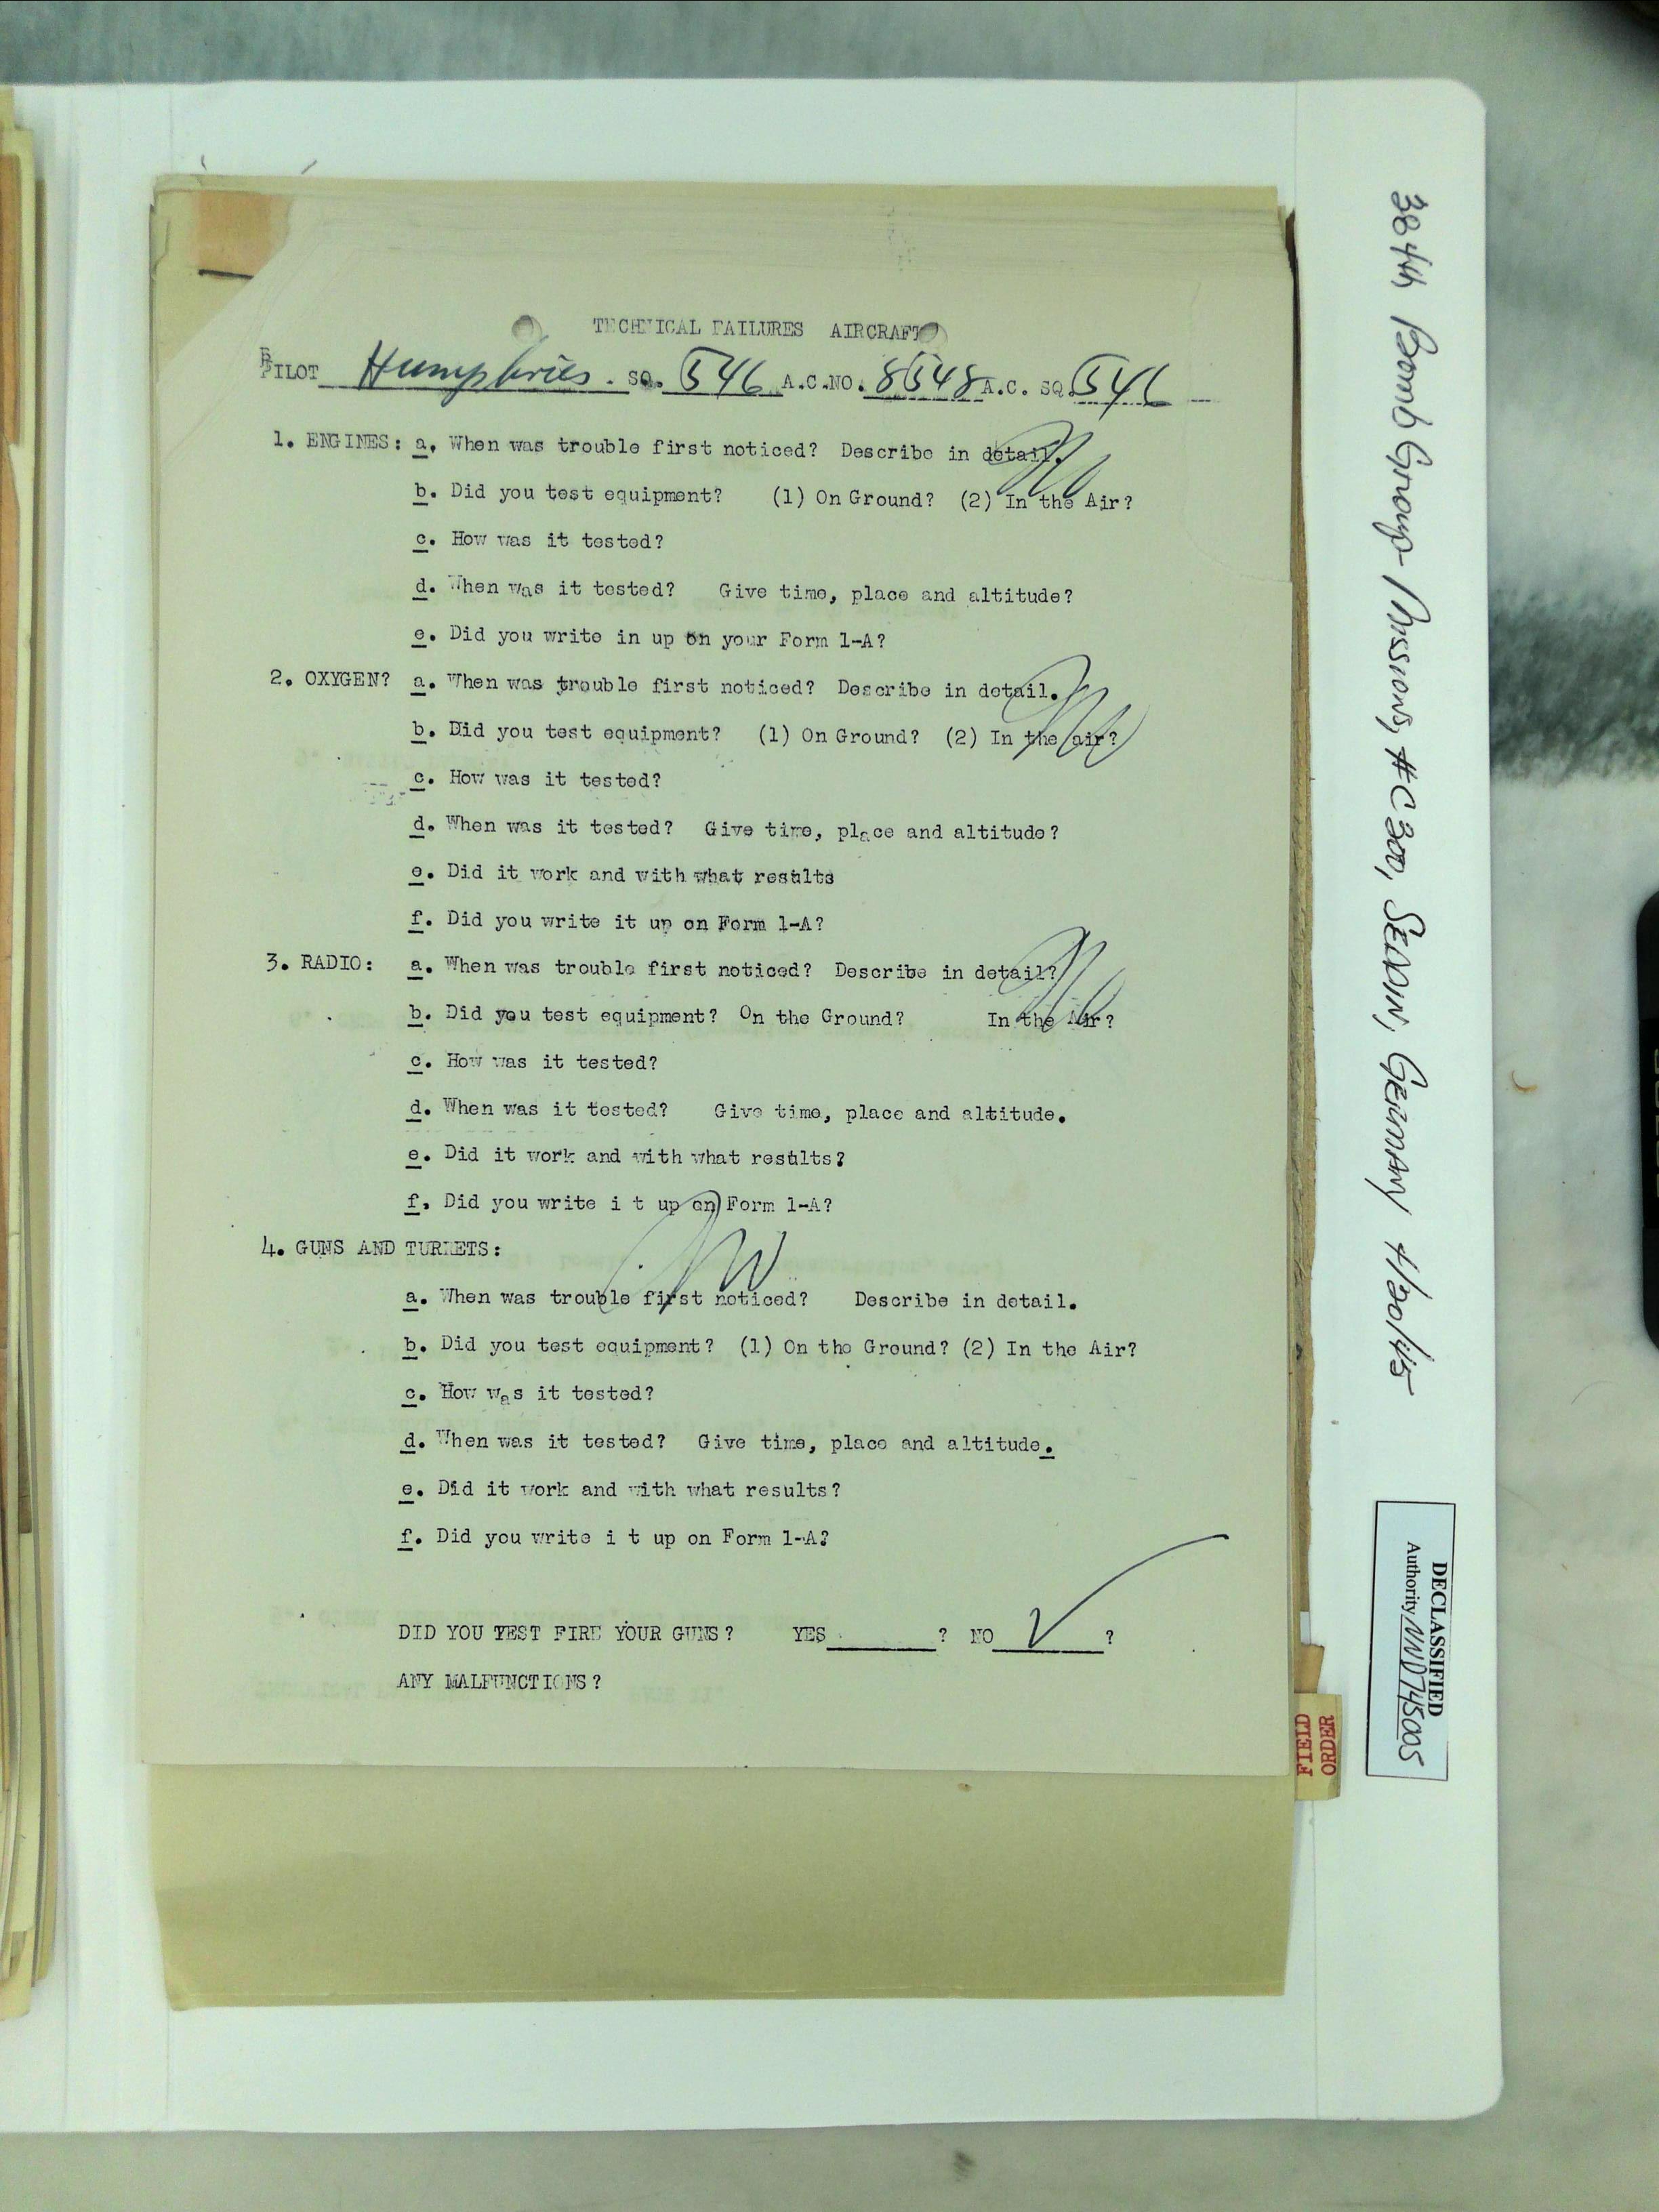 TECHNICAL FAILURES AIRCRAFT
PILOT Humphries. SQ. 546 A.C.NO. 8548 A.C. SQ. 546
1. ENGINES: a. When was trouble first noticed? Describe in detail.
b. Did you test equipment? (1) On Ground? (2) In the Air?
c. How was it tested?
d. When was it tested? Give time, place and altitude?
e. Did you write in up on your Form 1-A?
2. OXYGEN? a. When was trouble first noticed? Describe in detail.
b. Did you test equipment? (1) On Ground? (2) In the air?
c. How was it tested?
d. When was it tested? Give time, place and altitude?
e. Did it work and with what results
f. Did you write it up on Form 1-A?
3. RADIO: a. When was trouble first noticed? Describe in detail?
b. Did you test equipment? On the Ground? In the Air?
c. How was it tested?
d. When was it tested? Give time, place and altitude.
e. Did it work and with what results?
f. Did you write i t up on Form 1-A?
4. GUNS AND TURRETS:
a. When was trouble first noticed? Describe in detail.
b. Did you test equipment? (1) On the Ground? (2) In the Air?
c. How was it tested?
d. When was it tested? Give time, place and altitude.
e. Did it work and with what results?
f. Did you write i t up on Form 1-A?
DID YOU TEST FIRE YOUR GUNS? YES ? NO ✓ ?
ANY MALFUNCTIONS?
FIELD
ORDER
384th Bomb Group- Missions, #C300, SEDDIN, GERMANY 4/20/45
DECLASSIFIED
Authority NND745005